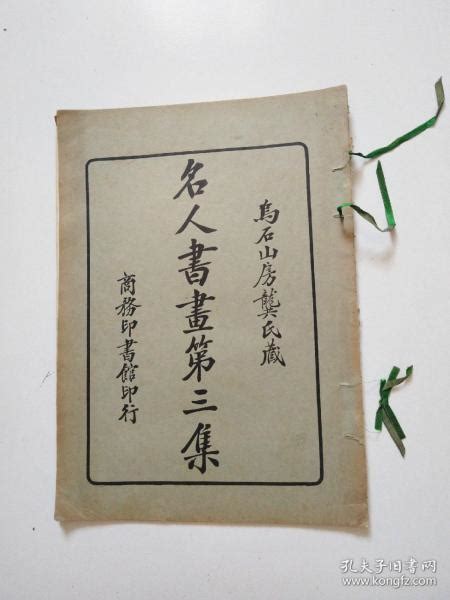 烏石山房龔氏藏
名人書畫第三集
商務印書館印行
孔夫子旧书网
www.kongfz.com